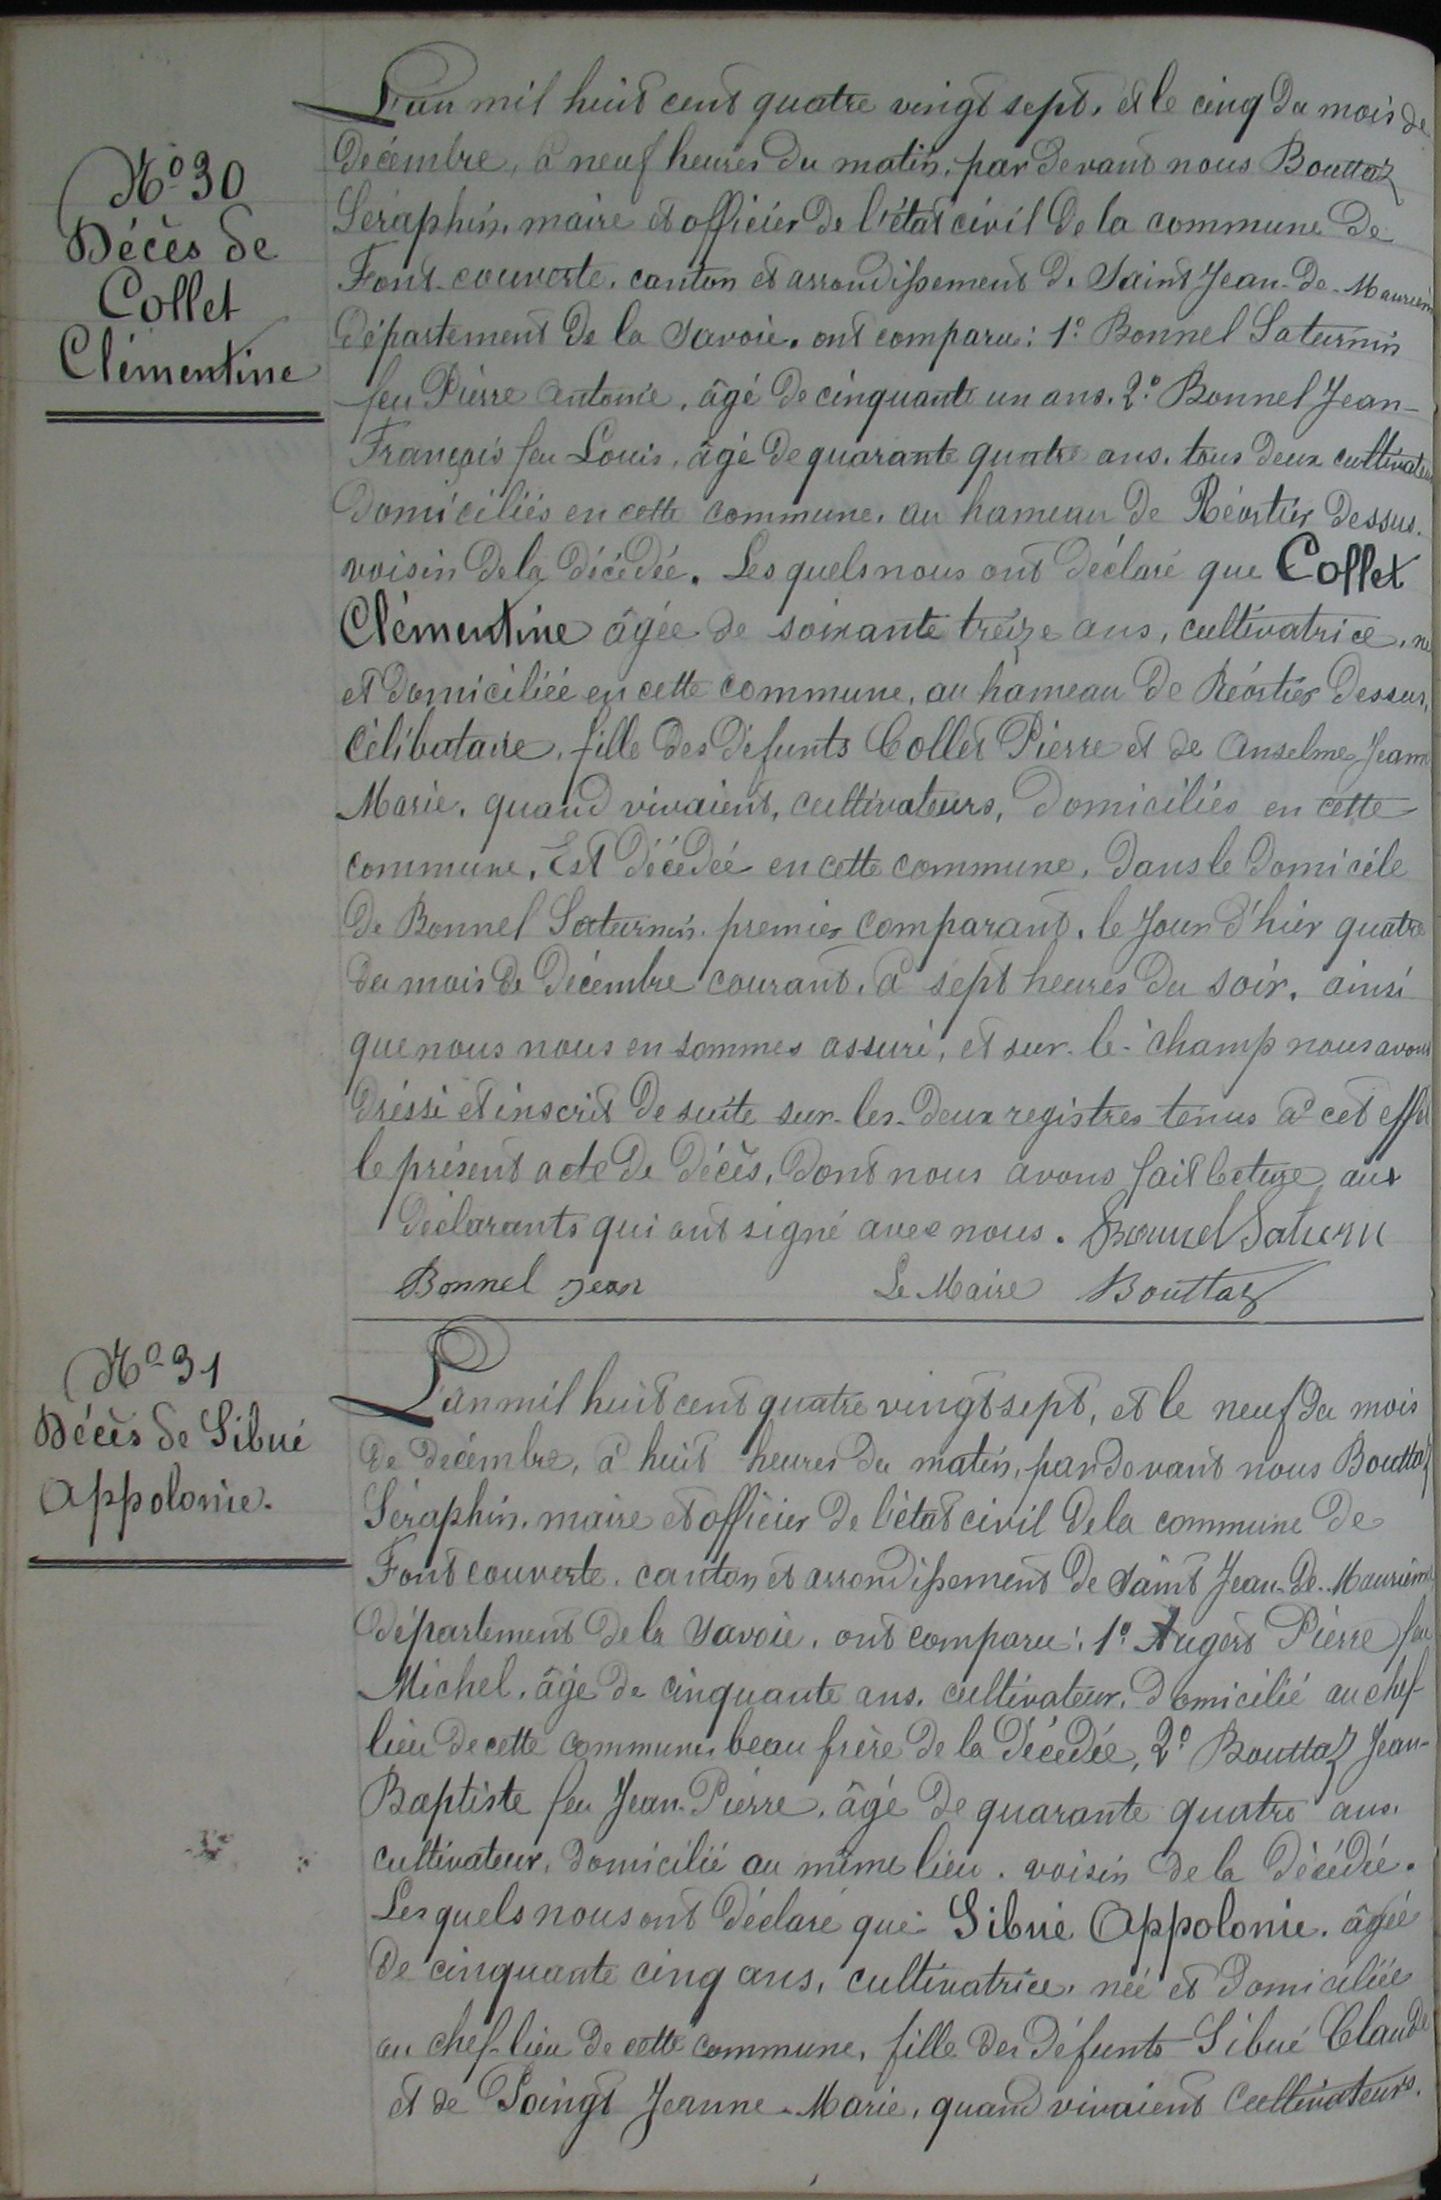 N° 30
Décès de
Collet
Clémentine
L'an mil huit cent quatre vingt sept, et le cinq du mois de
Décembre, à neuf heures du matin, par devant nous Bouttaz
Séraphin, maire et officier de l'état civil de la commune de
Font-couverte, canton et arrondissement de Saint Jean-de-Maurienne
département de la Savoie, ont comparu: 1° Bonnel Saturnin
feu Pierre Antoine, âgé de cinquante un ans, 2° Bonnel Jean-
François feu Louis, âgé de quarante quatre ans, tous deux cultivateurs
domiciliés en cette commune, au hameau de Réortier dessus,
voisin de la décédée. Les quels nous ont déclaré que Collet
Clémentine âgée de soixante treize ans, cultivatrice, née
et domiciliée en cette commune, au hameau de Réortier dessus,
Célibataire, fille des défunts Collet Pierre et de Anselme Jeanne
Marie, quand vivaient, cultivateurs, domiciliés en cette
commune, Est décédée en cette commune, dans le domicile
de Bonnel Saturnin premier comparant, le jour d'hier quatre
du mois de Décembre courant, à sept heures du soir, ainsi
que nous nous en sommes assuré, et sur-le-champ nous avons
dressé et inscrit de suite sur-les-deux registres tenus à cet effet
le présent acte de décès, dont nous avons fait lecture aux
déclarants qui ont signé avec nous. Bonnel Saturn
Bonnel Jean Le Maire Bouttaz
N° 31
Décès de Sibué
Appolonie.
L'an mil huit cent quatre vingt sept, et le neuf du mois
de décembre, à huit heures du matin, par devant nous Bouttaz
Séraphin, maire et officier de l'état civil de la commune de
Font couverte, canton et arrondissement de Saint Jean-de-Maurienne
département de la Savoie, ont comparu: 1° Augert Pierre feu
Michel, âgé de cinquante ans, cultivateur, domicilié au chef-
lieu de cette commune, beau frère de la décédée, 2° Bouttaz Jean-
Baptiste feu Jean-Pierre, âgé de quarante quatre ans,
cultivateur, domicilié au même lieu, voisin de la décédée.
Les quels nous ont déclaré que Sibué Appolonie, âgée
de cinquante cinq ans, cultivatrice, née et domiciliée
au chef-lieu de cette commune, fille des défunts Sibué Claude
et de Poingt Jeanne-Marie, quand vivaient cultivateurs.